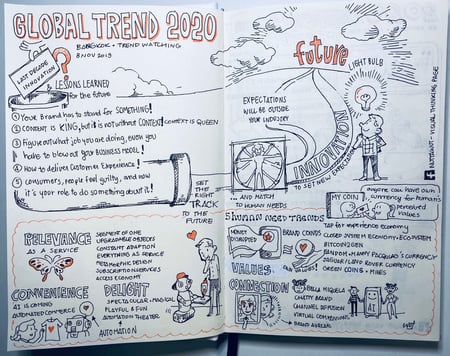 GLOBAL TREND 2020
BANGKOK • TREND WATCHING
8 NOV 2019
LAST DECADE
INNOVATION
?
& LESSONS LEARNED
for the future
① Your Brand has to stand for SOMETHING!
② CONTENT is KING, but it is not without CONTEXT! CONTEXT is QUEEN
③ Figure out what job you are doing, even you
have to blow out your BUSINESS MODEL!
④ HOW to deliver CUSTOMER EXPERIENCE!
⑤ CONSUMERS, people feel guilty, and now
it's your role to do something about it!
SET
THE
RIGHT
TRACK
TO THE
FUTURE
RELEVANCE
AS A SERVICE
SEGMENT OF ONE
UPGRADABLE OBJECTS
CONSTANT ADAPTION
EVERYTHING AS SERVICE
METAMORPHIC DESIGN
SUBSCRIPTION SERVICES
ACCESS ECONOMY
CONVENIENCE
AI IS COMING
AUTOMATED COMMERCE
DELIGHT
SPECTACULAR • MAGICAL
PLAYFUL & FUN
AUTOMATION THEATER
AUTOMATION
future
LIGHT BULB
EXPECTATIONS
WILL BE OUTSIDE
YOUR INDUSTRY
INNOVATION
TO SET NEW EXPECTATIONS
... AND MATCH
TO HUMAN NEEDS
- VISUAL THINKING PAGE
MY COIN
anyone can have own
currency for human's
perceived
values
5 HUMAN NEED TRENDS
MONEY
DISRUPTED
BRAND COINS
TAP for EXPERIENCE ECONOMY
CLOSED SYSTEM ECONOMY, ECOSYSTEM
BITCOIN2GEN
RANDOM: MANNY PACQUIAO'S CURRENCY
JAGUAR/LAND ROVER CURRENCY
GREEN COINS • MILES
VALUES
CONNECTION
MIQUELA
CHATTY BRAND
VIRTUAL COMPANIONS
BRAND AVATARS
AI